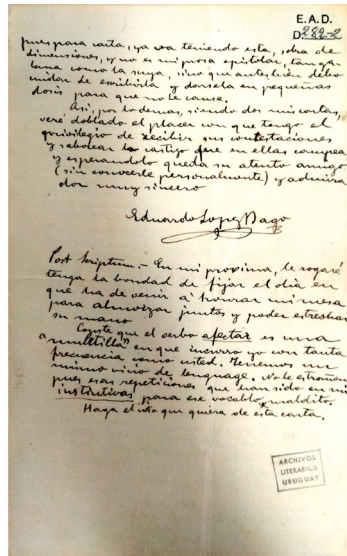 E.A.D.
D 282-2
pues para carta, ya va teniendo esta, sobra de
dimensiones, y no es mi prosa epistolar, tan ga-
lana como la suya, sino que antes bien debo
cuidar de escribirla y dársela en pequeñas
dosis para que no le canse.
Así, por lo demas, siendo dos mis cartas,
veré doblado el placer en que tengo el
privilegio de recibir sus contestaciones
y saborear lo castizo que en ellas campea
y esperandolo queda su atento amigo
(sin conocerle personalmente) y admira
dor muy sincero
Eduardo Lopez Bago
Post Scriptum.- En mi proxima, le rogaré
tenga la bondad de fijar el dia en
que ha de venir a honrar mi mesa
para almorzar juntos y poder estrechar
su mano
Conste que el verbo afectar es una
"muletilla" en que incurro yo con tanta
frecuencia como usted. Tenemos un
mismo vicio de lenguage. No le estrañen
pues esas repeticiones que han sido en mi
instintivas para ese vocablo maldito.
Haga el uso que quiera de esta carta.
ARCHIVOS
LITERARIOS
URUGUAY